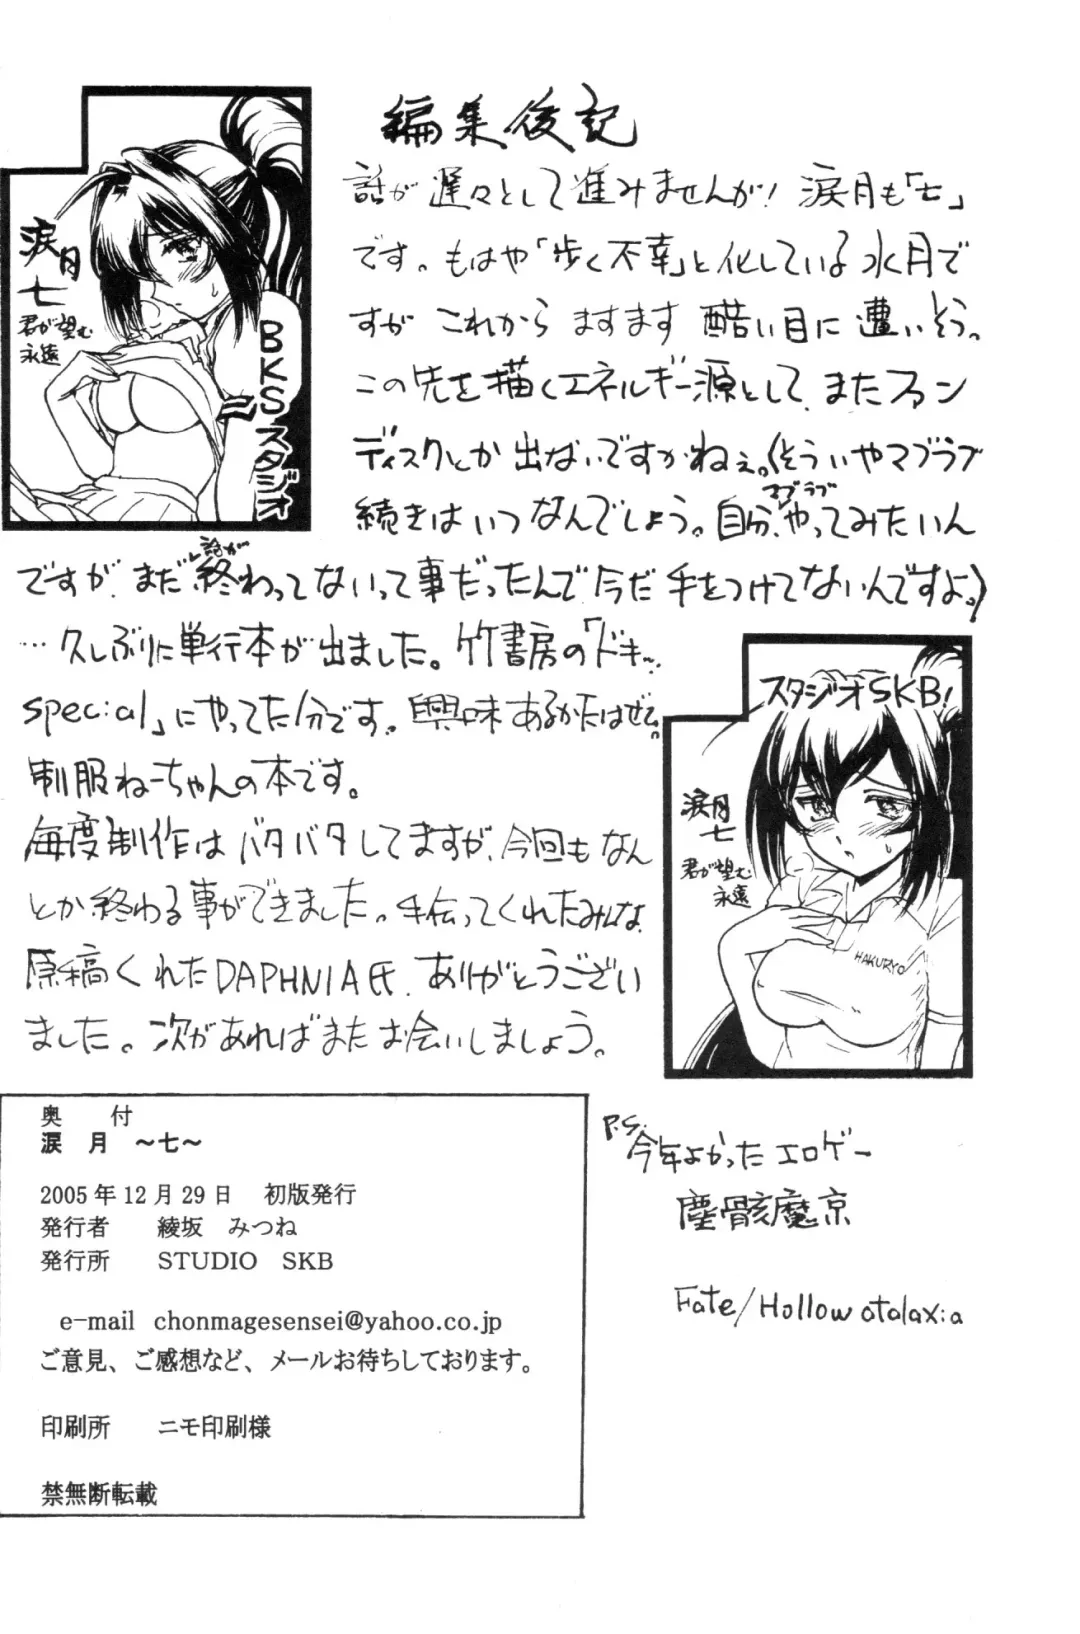 編集後記
話が遅々として進みませんが！涙月も「七」
です。もはや「歩く不幸」と化している水月で
すが これから ますます 酷い目に遭いそう。
この先を描くエネルギー源として、またファン
ディスクとか出ないですかねぇ。(そういやマブラブ
続きはいつなんでしょう。自分、やってみたいん
マブラブ
ですが、まだ終わってないって事だったんで今だ手をつけてないんですよ。)
話が
…久しぶりに単行本が出ました。竹書房の「ドキッ
special」にやってた分です。興味あるかたはぜひ。
制服ねーちゃんの本です。
毎度制作はバタバタしてますが、今回もなん
とか終わる事ができました。手伝ってくれたみんな
原稿くれたDAPHNIA氏、ありがとうござい
ました。次があればまたお会いしましょう。
涙月
七
君が望む
永遠
BKSスタジオ
スタジオSKB!
涙月
七
君が望む
永遠
HAKURYO
P.S.
今年よかったエロゲー
塵骸魔京
Fate/Hollow atalaxia
奥　付
涙　月　～七～
2005年12月29日　初版発行
発行者　綾坂　みつね
発行所　STUDIO　SKB
e-mail　chonmagesensei@yahoo.co.jp
ご意見、ご感想など、メールお待ちしております。
印刷所　ニモ印刷様
禁無断転載